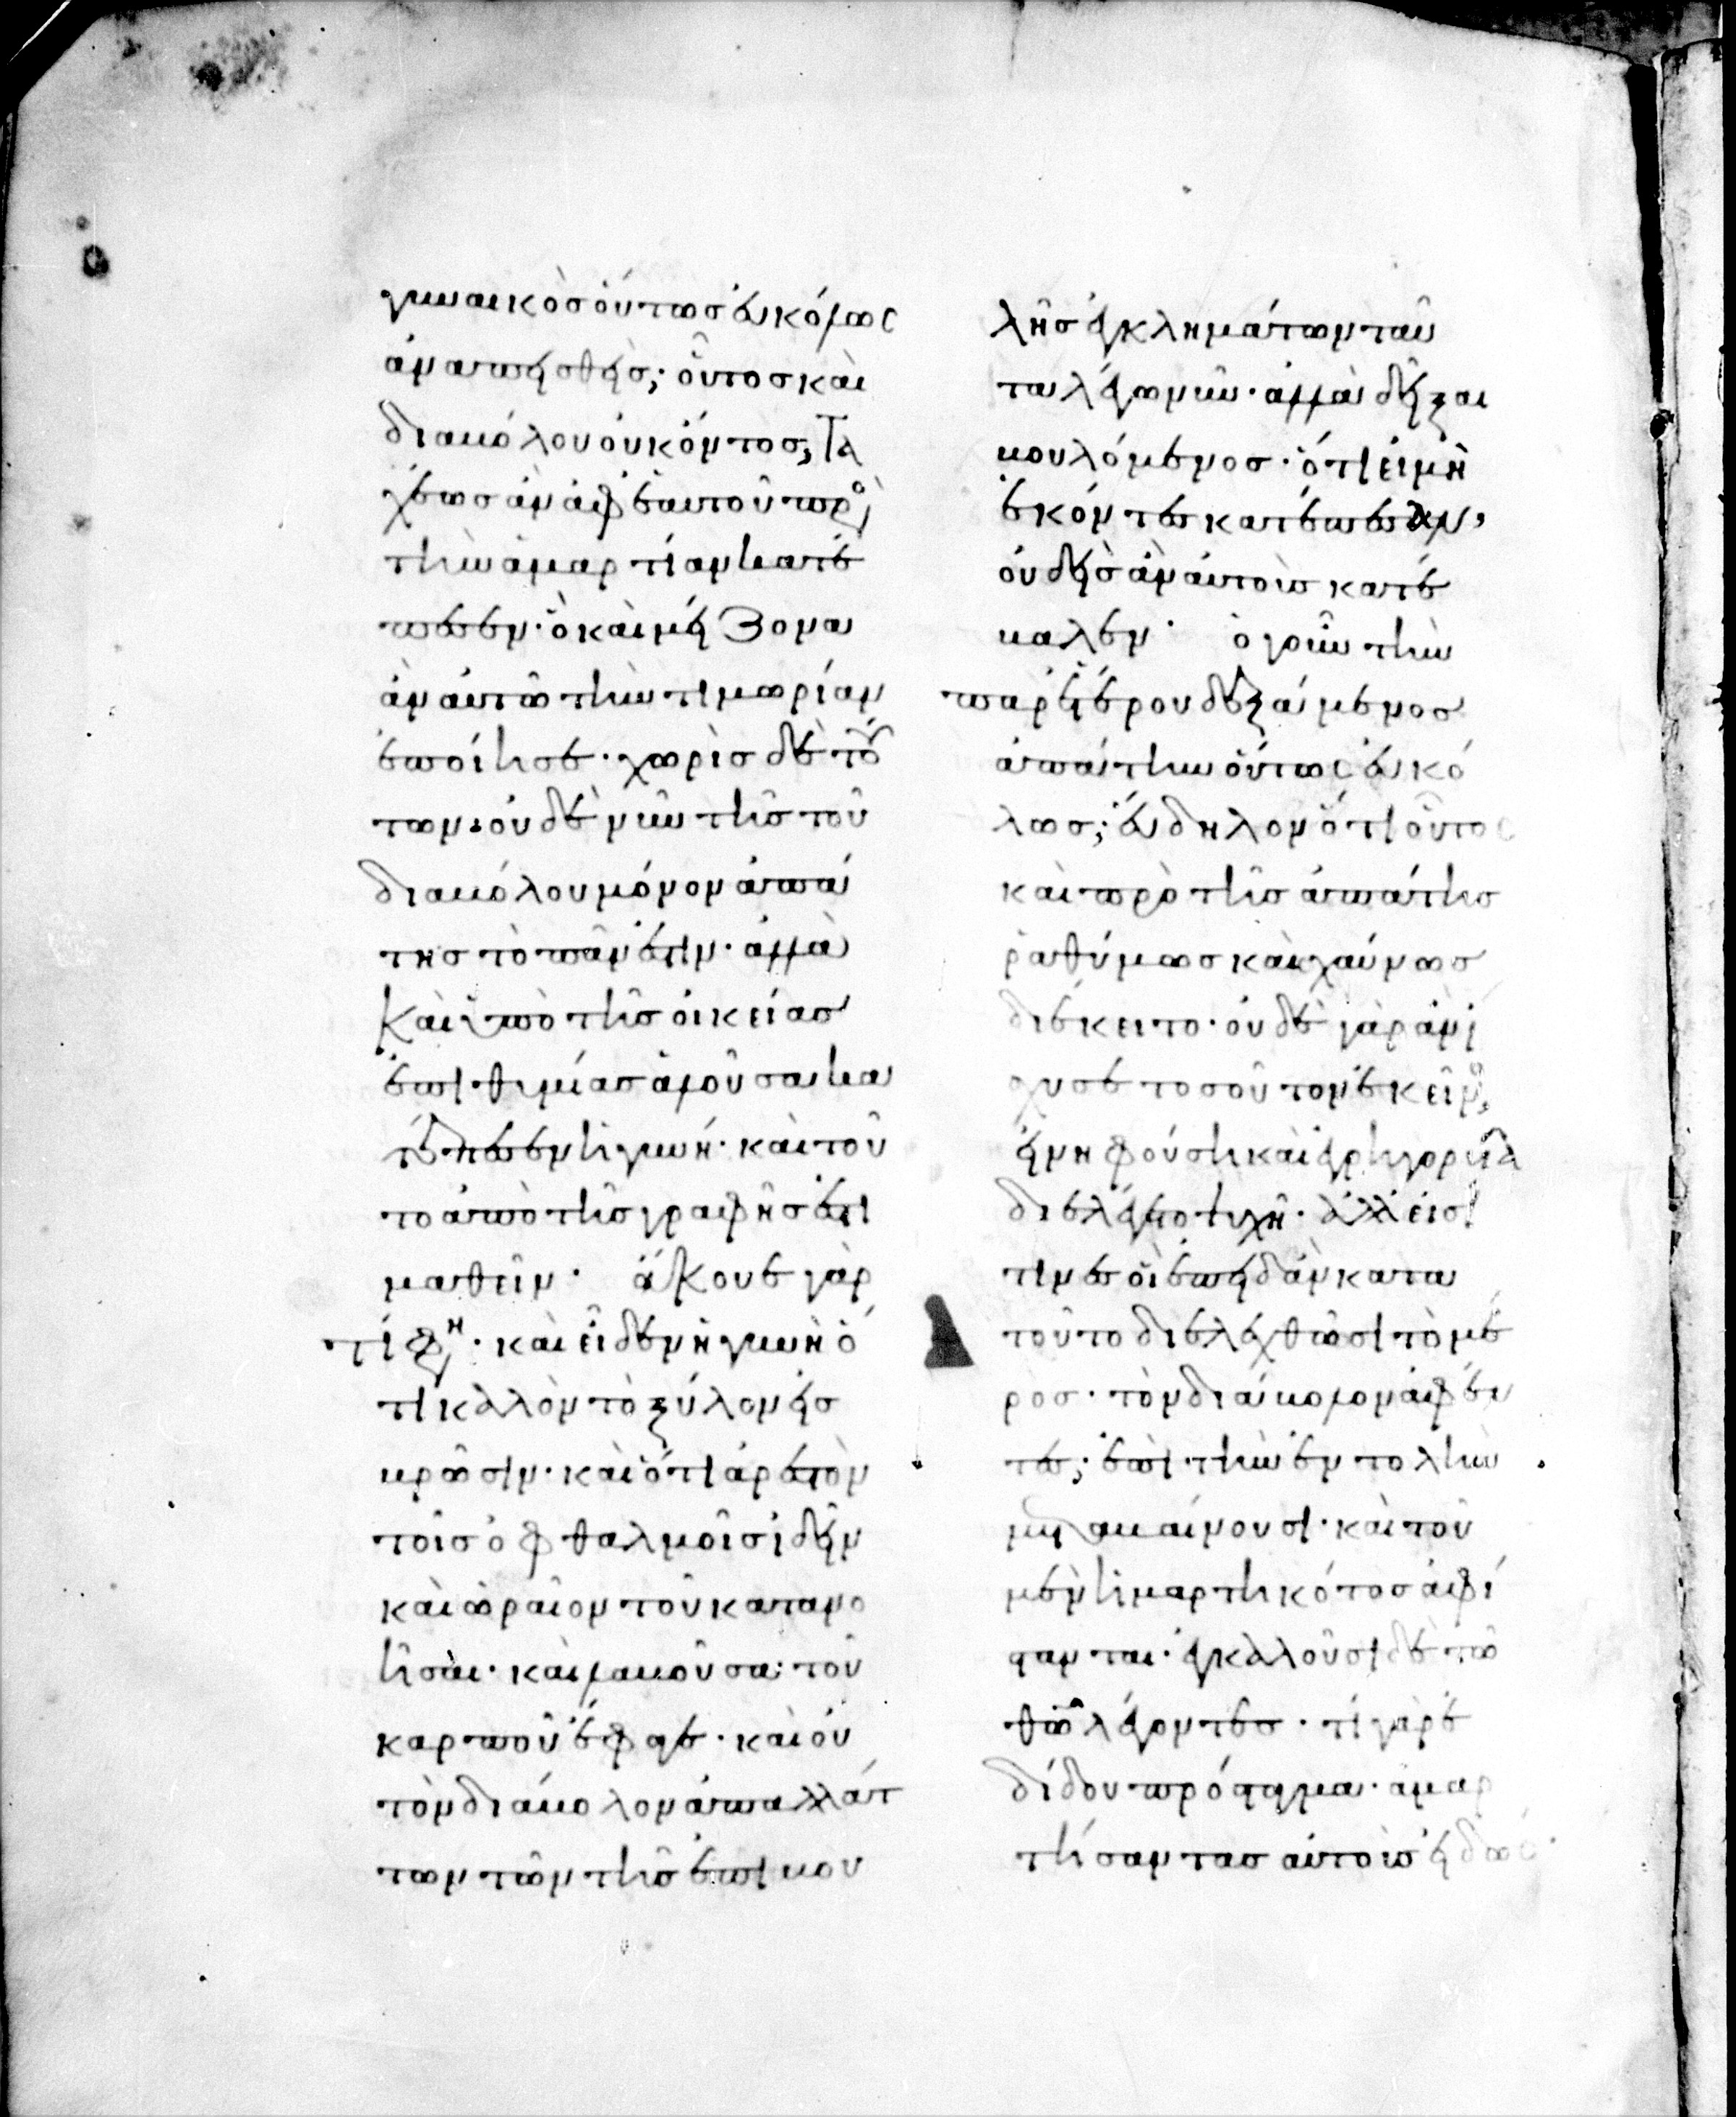 γυναικὸς οὕτως εὐκόλως
ἀναπεισθείς; οὗτος καὶ
διαβόλου οὐκ ὄντος, τα
χέως ἂν ἀφ' ἑαυτοῦ πρὸς
τὴν ἁμαρτίαν κατέ
πεσεν· ὃ καὶ μείζονα
ἂν αὐτῶ τὴν τιμωρίαν
ἐποίησε· χωρὶς δὲ τού
των, οὐδὲ νῦν τῆς τοῦ
διαβόλου μόνον ἀπά
της τὸ πᾶν ἐστιν· ἀλλὰ
καὶ ὑπὸ τῆς οἰκείας
ἐπιθυμίας ἁλοῦσα κα
τέπεσεν ἡ γυνή· καὶ τοῦ
το ἀπὸ τῆς γραφῆς ἐστι
μαθεῖν· ἄκουε γὰρ
τί φησιν· καὶ εἶδεν ἡ γυνὴ ὅ
τι καλὸν τὸ ξύλον εἰς
βρῶσιν· καὶ ὅτι ἀρεστὸν
τοῖς ὀφθαλμοῖς ἰδεῖν
καὶ ὡραῖον τοῦ κατανο
ῆσαι· καὶ λαβοῦσα τοῦ
καρποῦ ἔφαγε· καὶ οὐ
τὸν διάβολον ἀπαλλάτ
των τῶν τῆς ἐπιβου
λῆς ἐγκλημάτων ταῦ
τα λέγω νῦν· ἀλλὰ δεῖξαι
βουλόμενος· ὅτι εἰ μὴ
ἑκόντες κατέπεσαν,
οὐδεὶς ἂν αὐτοὺς κατέ
βαλεν· ὁ γοῦν τὴν
παρ' ἑτέρου δεξάμενος
ἀπάτην οὕτως εὐκό
λως; εὔδηλον ὅτι οὗτος
καὶ πρὸ τῆς ἀπάτης
ῥαθύμως καὶ χαύνως
διέκειτο· οὐδὲ γὰρ ἂν ἴ
σχυσε τοσοῦτον ἐκεῖνος,
εἰ νηφούση καὶ ἐγρηγορυῖα
διελέγετο ψυχῆ· ἀλλ' εἰσί
τινες οἳ ἐπειδὰν κατὰ
τοῦτο διελεγχθῶσι τὸ μέ
ρος· τὸν διάβολον ἀφέν
τες; ἐπὶ τὴν ἐντολὴν
μεταβαίνουσι· καὶ τοῦ
μὲν ἡμαρτηκότος ἀφί
στανται· ἐγκαλοῦσι δὲ τῶ
θεῶ λέγοντες· τί γὰρ ἐ
δίδου πρόσταγμα· ἁμαρ
τήσαντας αὐτοὺς εἰδώς·